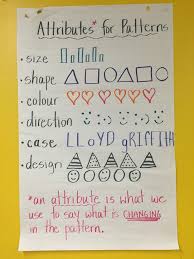 Attributes* for Patterns
• size
• shape
• colour
• direction
• case LLoYD gRIFFItH
• design
*an attribute is what we
use to say what is CHANGING
in the pattern.